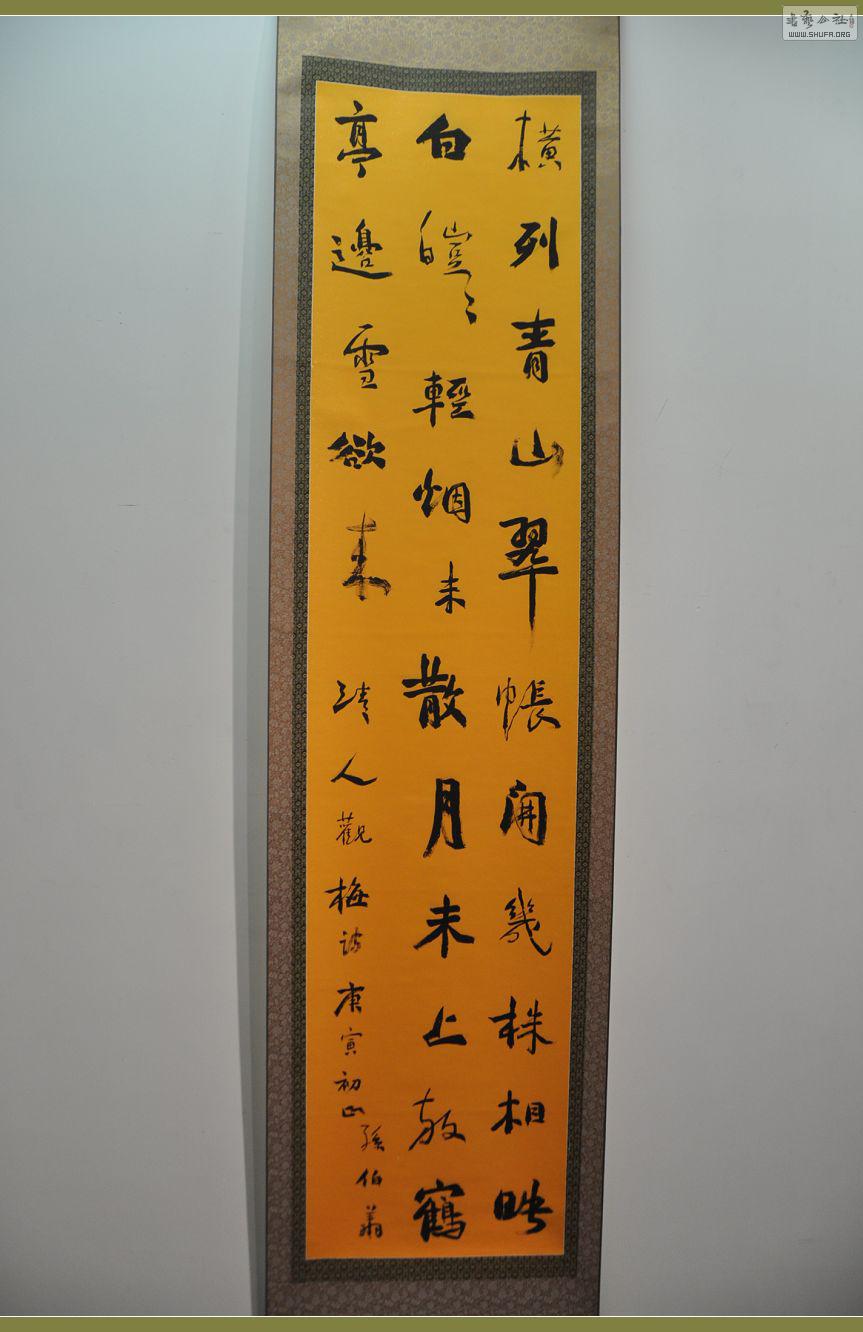 橫列青山翠帳開幾株相映
白皚々輕烟未散月未上放鶴
亭邊雪欲來 清人觀梅詩 庚寅初 孫伯翔
WWW.SHUFA.ORG